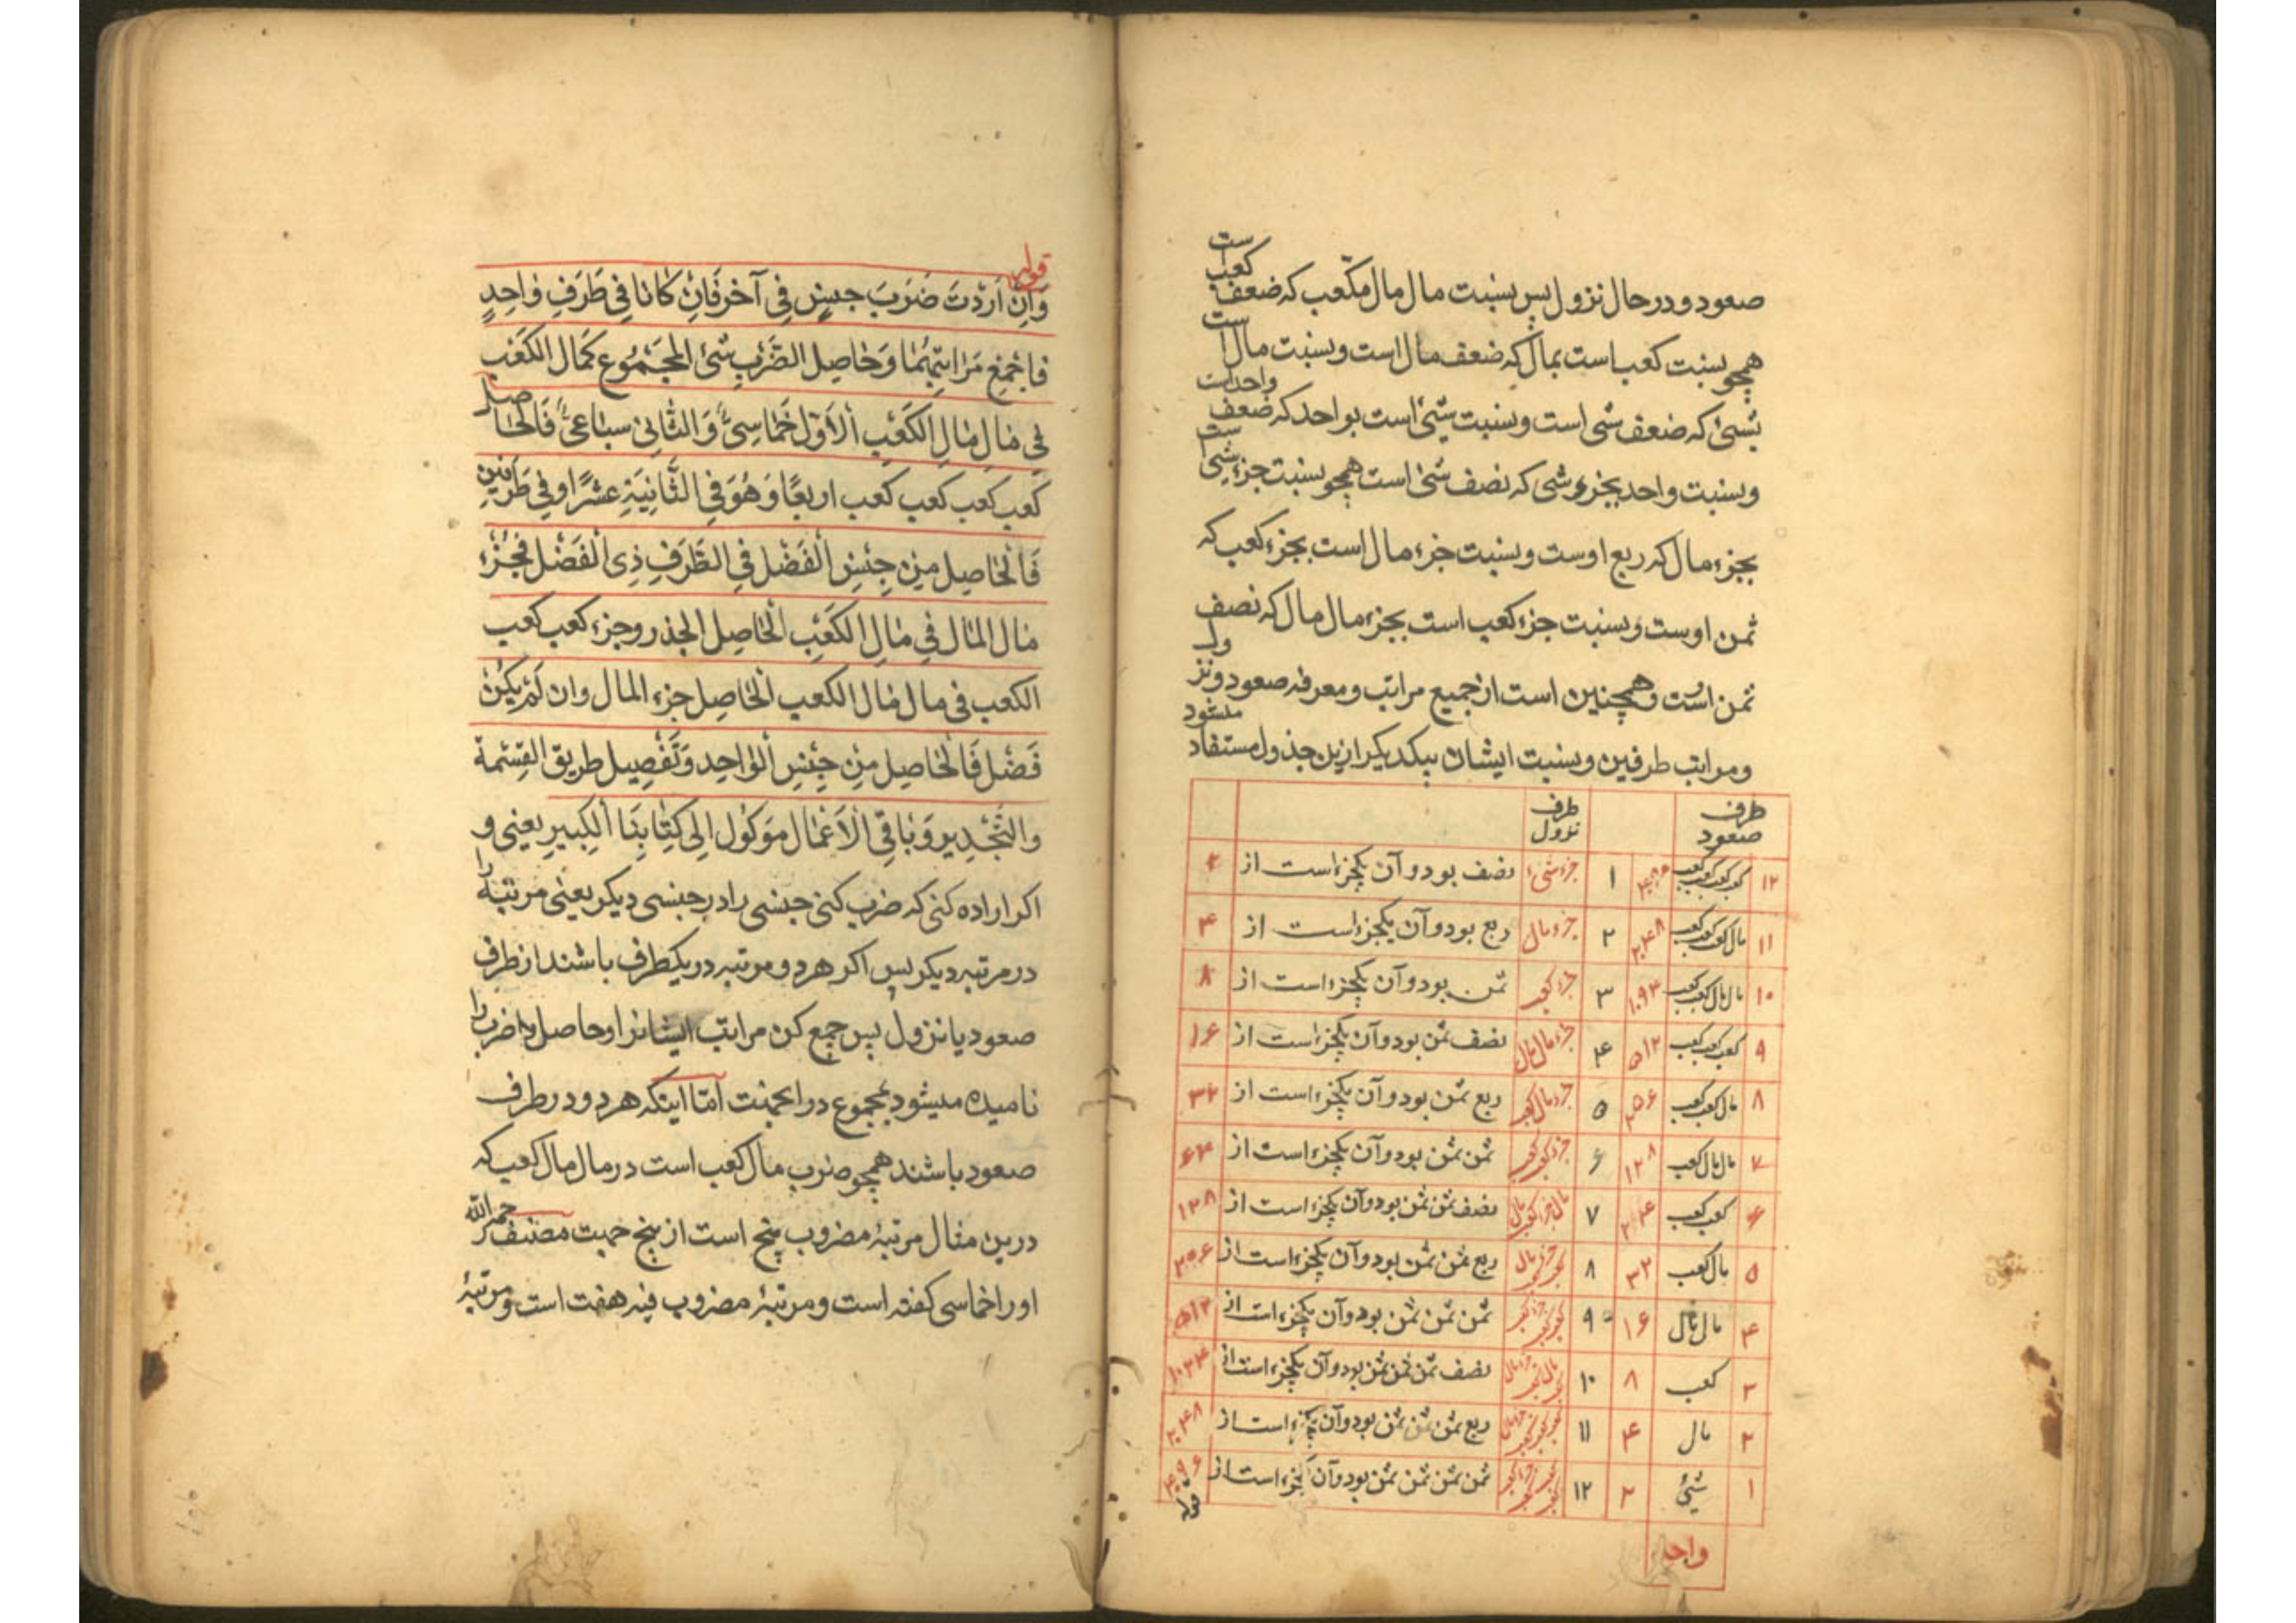 صعود و در حال نزول پس بنسبت مال مال مکعب که ضعف کعب است
همچو بنسبت کعب است بمال که ضعف مال است و بنسبت مال است
بشئ که ضعف شی است و بنسبت شئ است بواحد که ضعف واحد است
و بنسبت واحد بجزء شی که نصف شئ است همچو بنسبت جزء شئ است
بجزء مال که ربع اوست و بنسبت جزء مال است بجزء کعب که
ثمن اوست و بنسبت جزء کعب است بجزء مال مال که نصف
ثمن است و همچنین است از جمیع مراتب و معرفه صعود و نزول
و مراتب طرفین و بنسبت ایشان بیکدیگر ازین جذول مستفاد میشود
طرف صعود طرف نزول
۱۲ کعب کعب کعب کعب ۱ جزء شئ نصف بود و آن یکجزء است از ۲
۱۱ مال کعب کعب کعب ۲۰۴۸ ۲ جزء مال ربع بود و آن یکجزء است از ۴
۱۰ مال مال کعب کعب ۳ جزء کعب ثمن بود و آن یکجزء است از ۸
۹ کعب کعب کعب ۵۱۲ ۴ جزء مال مال نصف ثمن بود و آن یکجزء است از ۱۶
۸ مال کعب کعب ۲۵۶ ۵ جزء مال کعب ربع ثمن بود و آن یکجزء است از ۳۲
۷ مال مال کعب ۱۲۸ ۶ جزء کعب کعب ثمن ثمن بود و آن یکجزء است از ۶۴
۶ کعب کعب ۷ نصف ثمن ثمن بود و آن یکجزء است از ۱۲۸
۵ مال کعب ۳۲ ۸ ربع ثمن ثمن بود و آن یکجزء است از ۲۵۶
۴ مال مال ۱۶ ۹ ثمن ثمن ثمن بود و آن یکجزء است از ۵۱۲
۳ کعب ۸ ۱۰ نصف ثمن ثمن ثمن بود و آن یکجزء است از ۱۰۲۴
۲ مال ۴ ۱۱ ربع ثمن ثمن ثمن بود و آن یکجزء است از ۲۰۴۸
۱ شئ ۲ ۱۲ ثمن ثمن ثمن ثمن بود و آن یکجزء است از ۴۰۹۶
واحد
قوله
قوله
وَاِنْ اَرَدْتَ ضَرَبَ جِنسٍ فِي آخَر فَاِنْ كَانَا فِي طَرَفٍ وَاحِدٍ
فَاجْمَعْ مَرَاتِبَهُمَا وَحَاصِل الضَّرْبِ سُمِّيَ المَجْمُوع كَمَال الكَعْبِ
فِي مَالِ مَالِ الكَعْبِ اَلْاَوّلُ خُمَاسِيٌّ وَالثَّانِي سباعِيٌّ فَالحَاصِل
كعب كعب كعب كعب اربعًا وَهُوَ فِي الثَّانِيَةِ عشرًا او فِي طَرَفَيْنِ
فَالحَاصِل مِنْ جِنْسِ الْفَضْلِ فِي الطَّرَفِ ذِي الْفَضْل فَجُزْء
مَال المَال فِي مَالِ الكَعْبِ اَلحَاصِل الجذر وجزء كعب كعب
الكعب فی مال مَال الكعب الحَاصِل جزء المال وان لَمْ يَكُنْ
فَضْل فَالحَاصِل مِنْ جِنْسِ الْوَاحِد وَتَفْصِيل طريق القِسْمة
والتَّجْذِير وَبَاقِي الْاَعْمَال مَوْكُول اِلى كِتَابِنَا الكبِيرِ یعنی و
اکر اراده کنی که ضرب کنی جنسی را در جنسی دیکر یعنی مرتبهٔ را
در مرتبه دیکر پس اکر هر دو مرتبه در یکطرف باشند از طرف
صعود یا نزول پس جمع کن مراتب ایشانرا و حاصل ضرب را
نامیده میشود بمجموع در اینجهت امّا اینکه هر دو در طرف
صعود باشند همچو ضرب مال کعب است در مال مال کعب که
درین مثال مرتبهٔ مضروب پنج است از پنج جهت مصنف رحمه الله
او را خماسی کفته است و مرتبهٔ مضروب فیه هفت است و مرتبهٔ